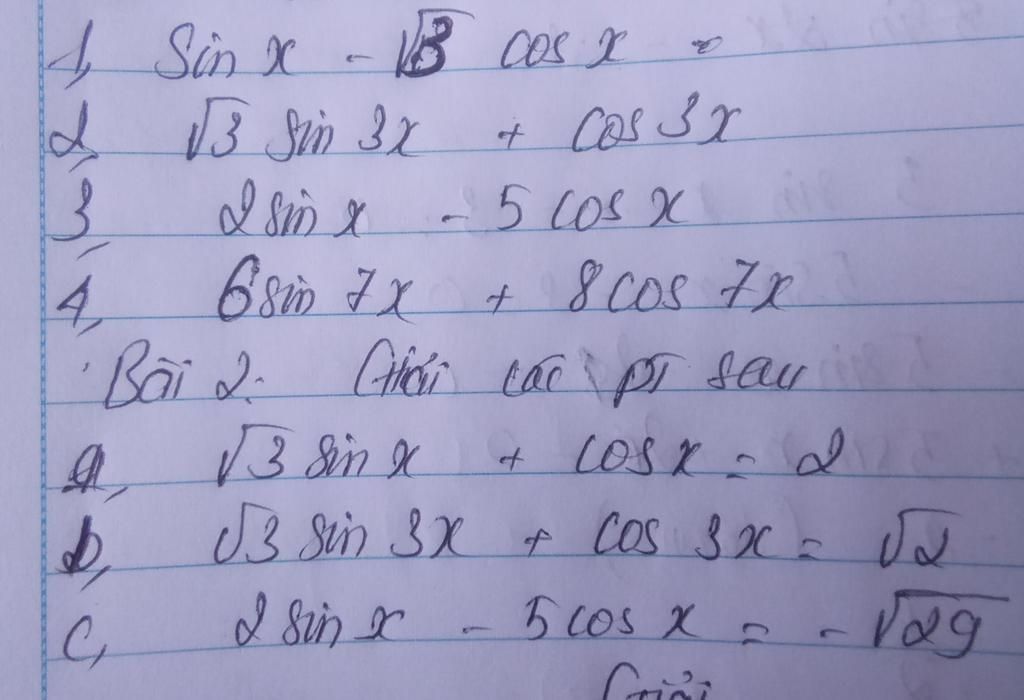 1, Sin x - √3 cos x =
2, √3 sin 3x + cos 3x
3, 2 sin x - 5 cos x
4, 6 sin 7x + 8 cos 7x
Bài 2: Giải các pt sau
a, √3 sin x + cos x = 2
b, √3 sin 3x + cos 3x = √2
c, 2 sin x - 5 cos x = - √29
Giải